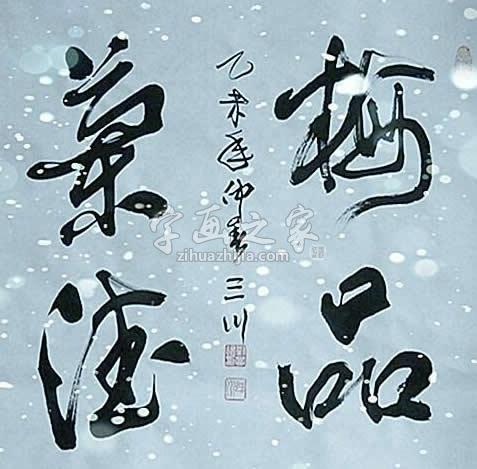 梅品
蘭德
乙未年仲春三川
字画之家
zihuazhijia.com